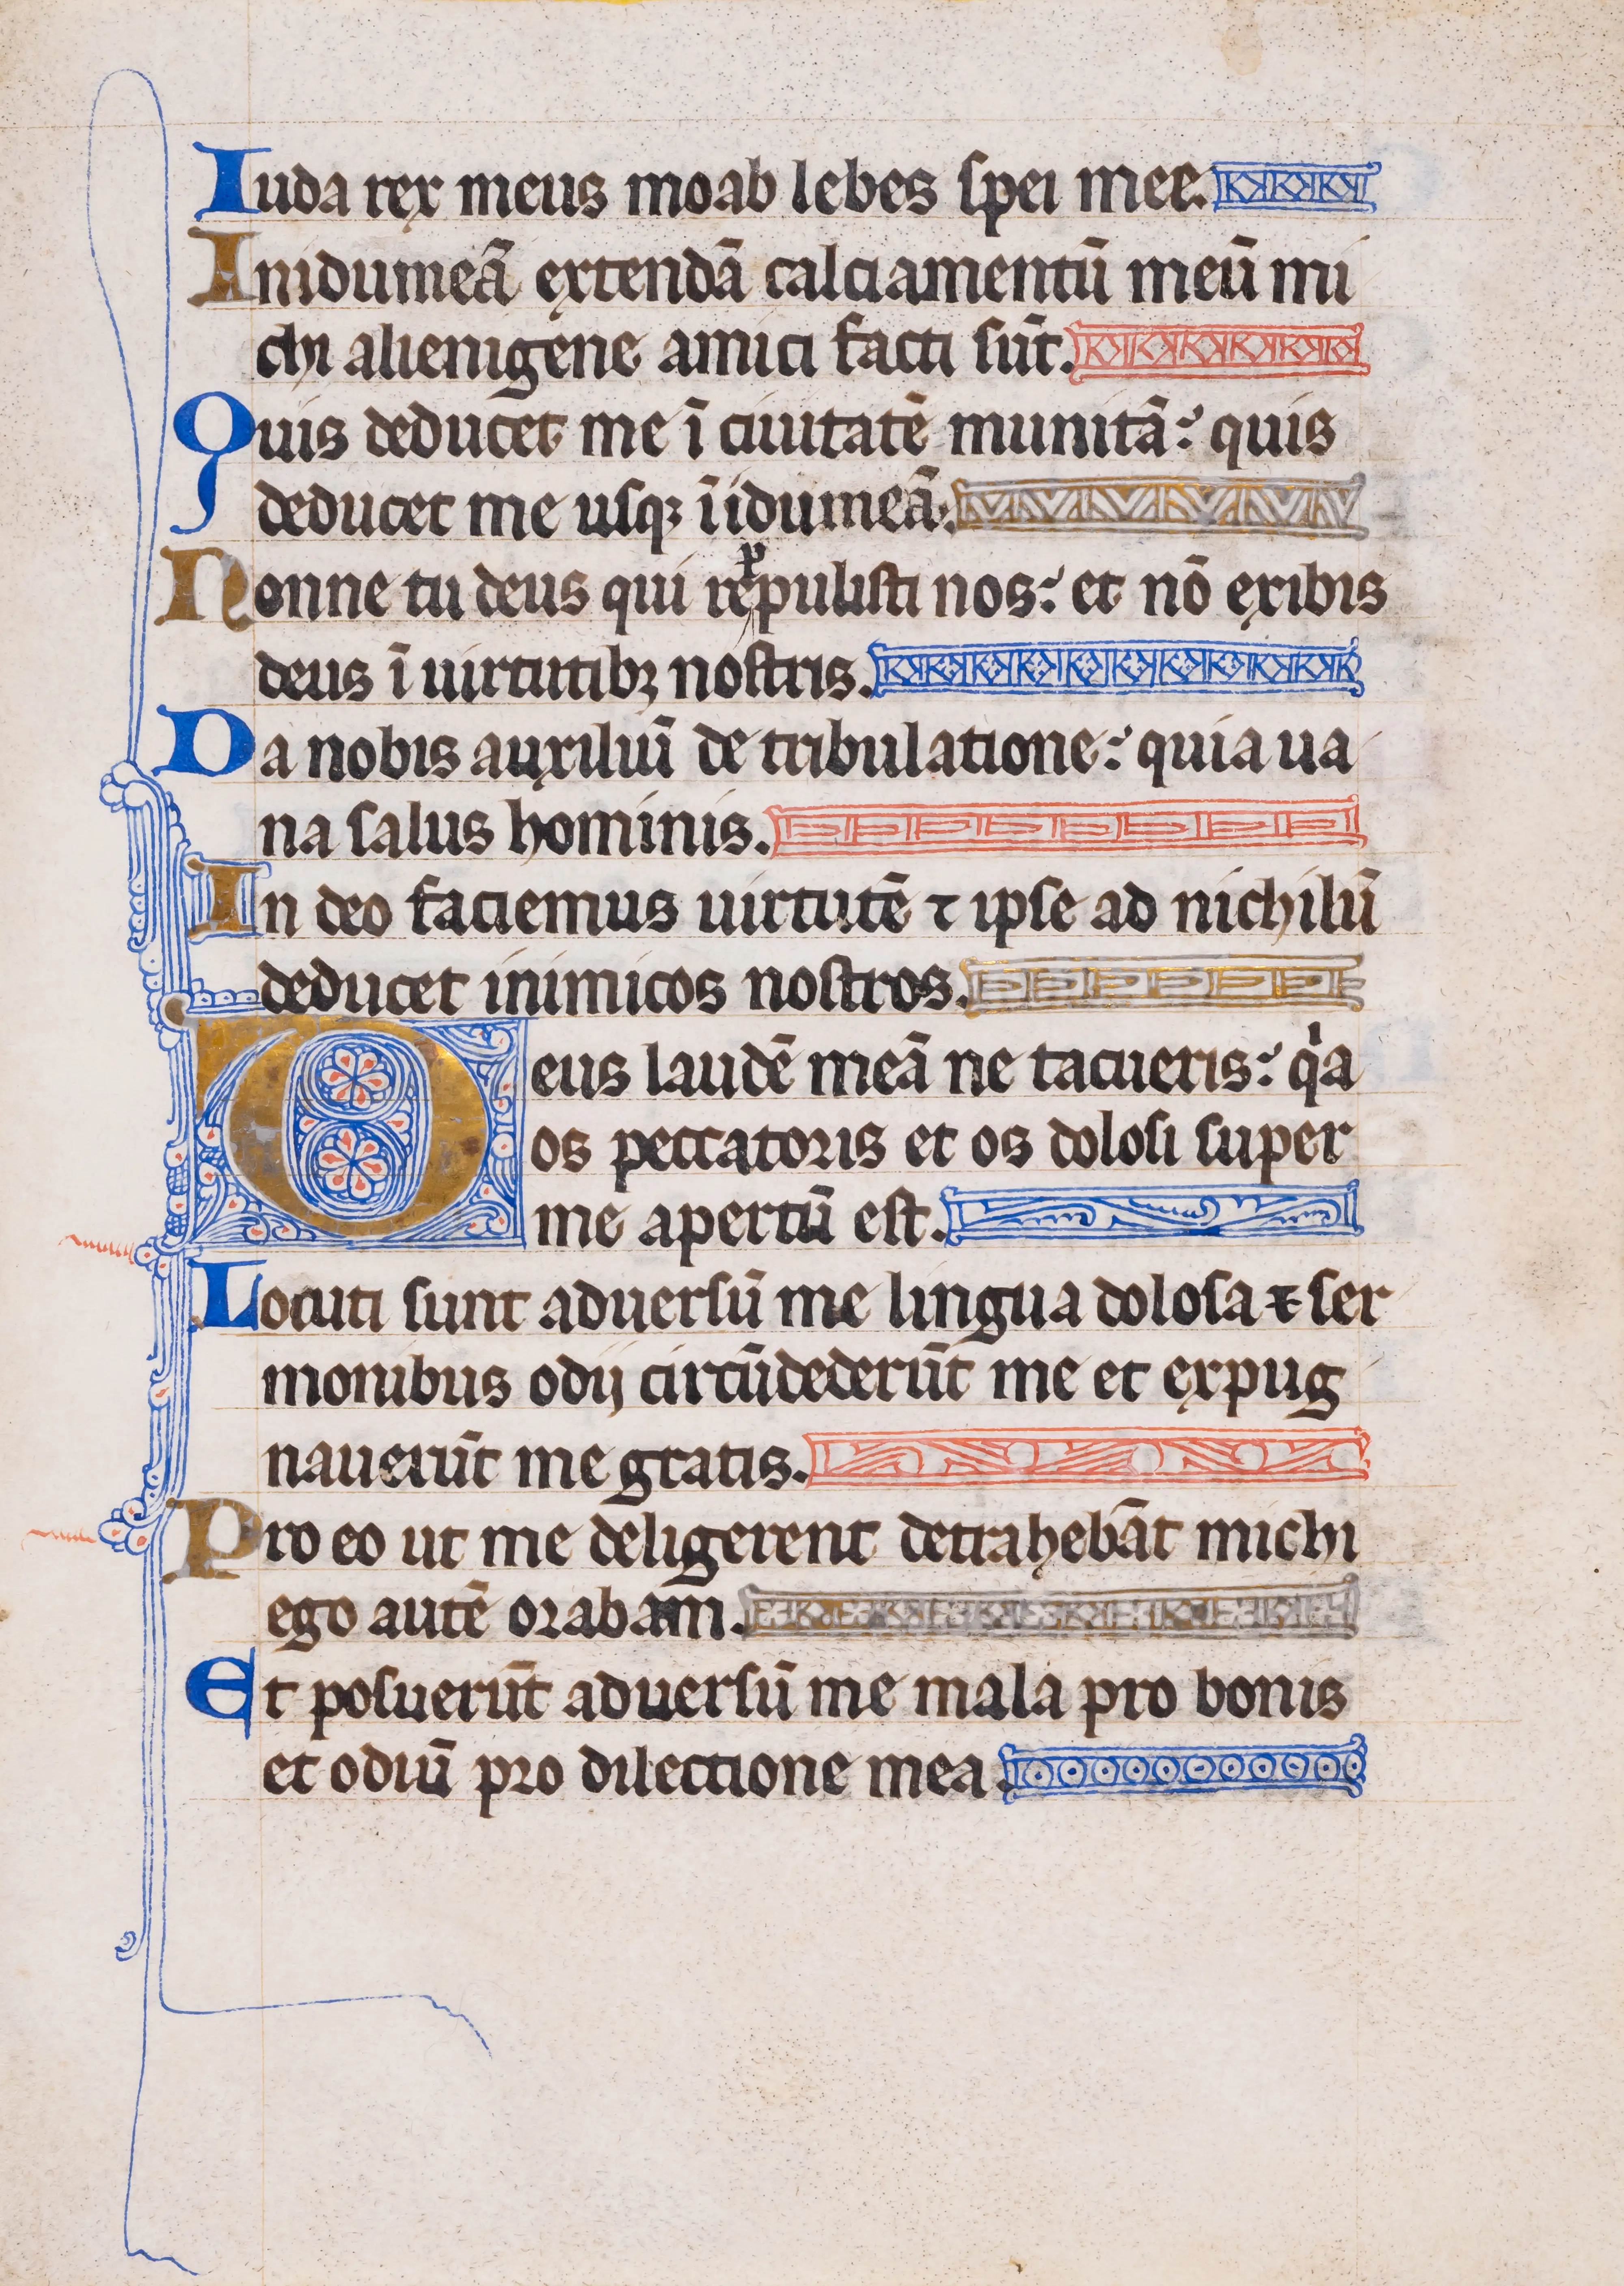 Iuda rex meus moab lebes spei mee.
In idumeā extendā calciamentū meū mi
chi alienigene amici facti sūt.
Quis deducet me ī ciuitatē munitā: quis
deducet me usqꝫ ī idumeā.
Nonne tu deus qui reppulisti nos: et nō exibis
deus ī uirtutibꝫ nostris.
Da nobis auxiliū de tribulatione: quia ua
na salus hominis.
In deo faciemus uirtutē ⁊ ipse ad nichilū
deducet inimicos nostros.
Deus laudē meā ne tacueris: qⁱa
os peccatoris et os dolosi super
me apertū est.
Locuti sunt aduersū me lingua dolosa ⁊ ser
monibus odij circūdederūt me et expug
nauerūt me gratis.
Pro eo ut me deligerent detrahebāt michi
ego autē orabam.
Et posuerūt aduersū me mala pro bonis
et odiū pro dilectione mea.